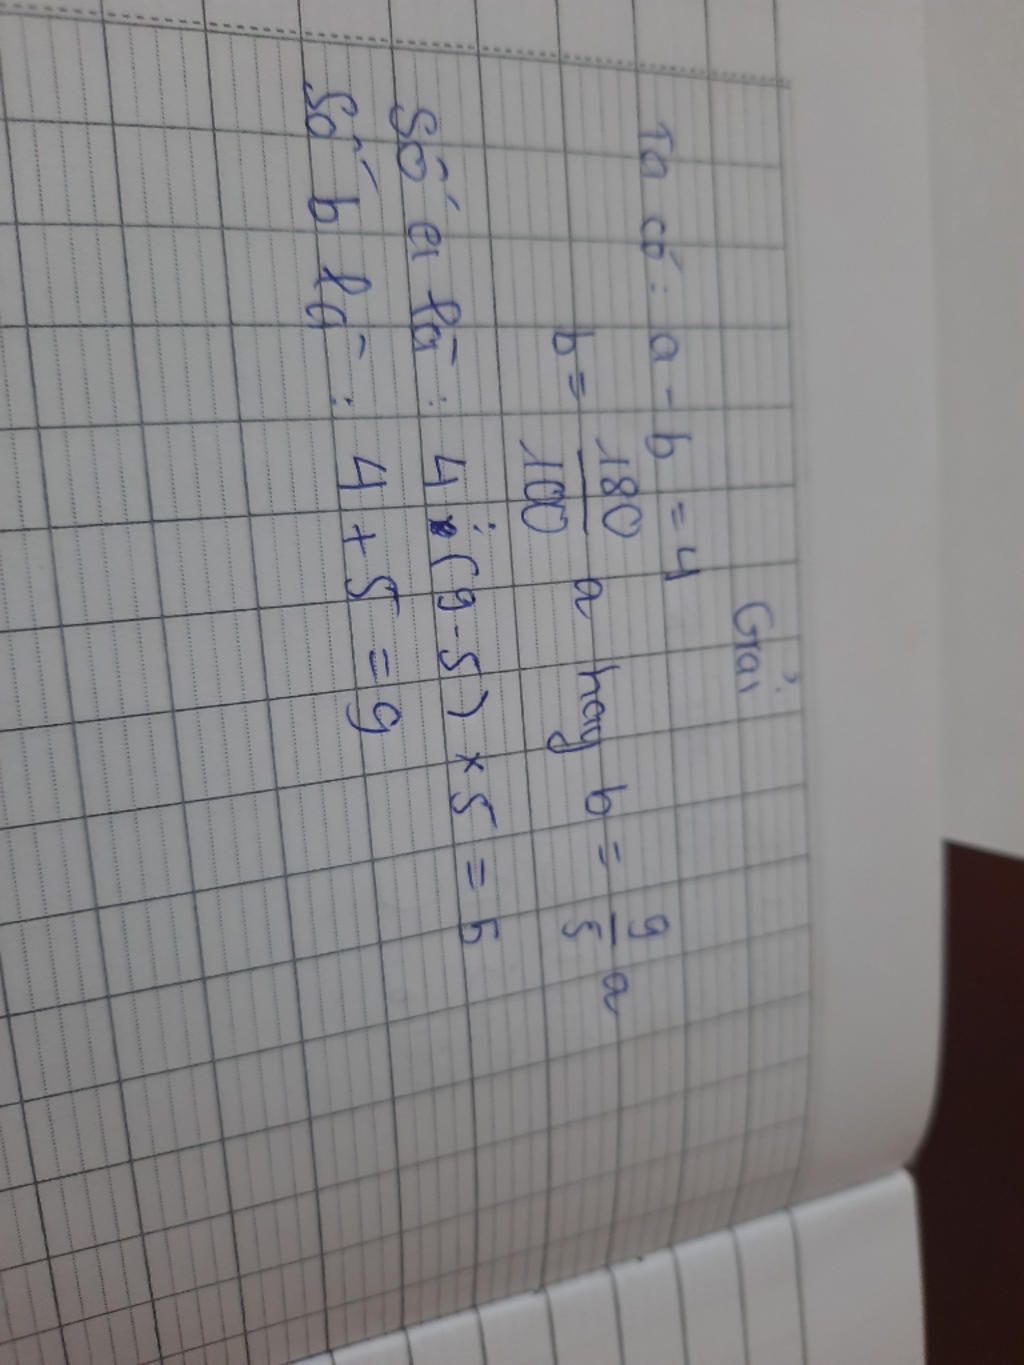 Giải
Ta có: a - b = 4
b = 180/100 a hay b = 9/5 a
Số a là: 4 : (9-5) x 5 = 5
Số b là: 4 + 5 = 9